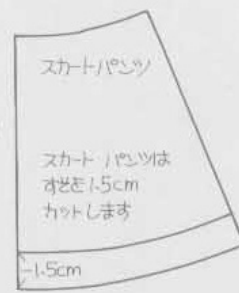 スカートパンツ
スカート パンツは
すそを1.5cm
カットします
1.5cm